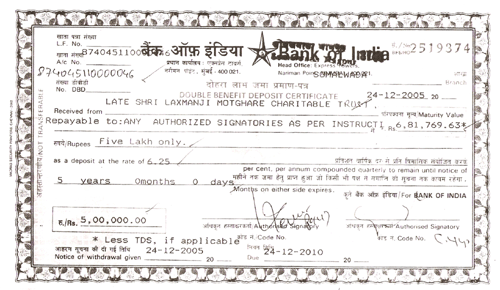 खाता पन्ना संख्या
L.F. No.
खाता संख्या
A/c. No.
874045110000046
874045110000046
संख्या डीबीडी
No. DBD
बैंक ऑफ़ इंडिया
Bank of India
प्रधान कार्यालय : एक्सप्रेस टावर्स
नरीमन पॉइंट, मुंबई - 400 021.
Head Office: Express Towers,
Nariman Point
SOMALWADA
2519374
दोहरा लाभ जमा प्रमाण-पत्र
DOUBLE BENEFIT DEPOSIT CERTIFICATE
24-12-2005 20
LATE SHRI LAXMANJI MOTGHARE CHARITABLE TRUST
Received from
Maturity Value
Repayable to:ANY AUTHORIZED SIGNATORIES AS PER INSTRUCTI
6,81,769.63
रुपये/Rupees Five Lakh only.
as a deposit at the rate of 6.25
per cent. per annum compounded quarterly to remain until notice of
5 years 0months 0 days
Months on either side expires.
कृते बैंक ऑफ़ इंडिया/For BANK OF INDIA
रु./Rs. 5,00,000.00
Authorised Signatory
Authorised Signatory
कोड नं. Code No.
कोड नं. Code No.
* Less TDS, if applicable
24-12-2005
24-12-2010
Notice of withdrawal given 20
Due 20
NOT TRANSFERABLE